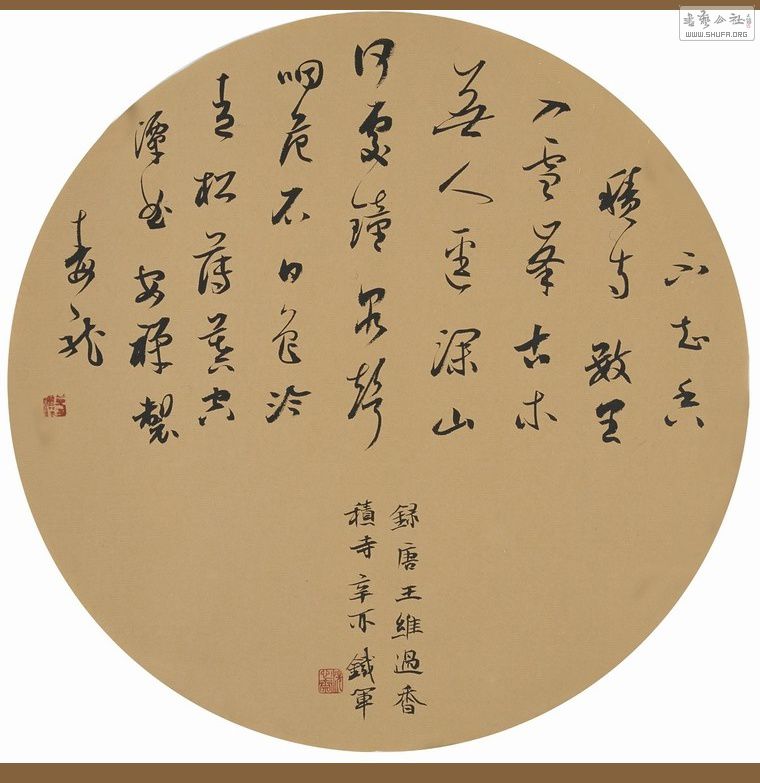 不知香
積寺數里
入雲峯古木
無人逕深山
何處鐘泉聲
咽危石日色冷
青松薄暮空
潭曲安禪製
毒龍
録唐王維過香
積寺辛卯鐵軍
書藝公社
WWW.SHUFA.ORG